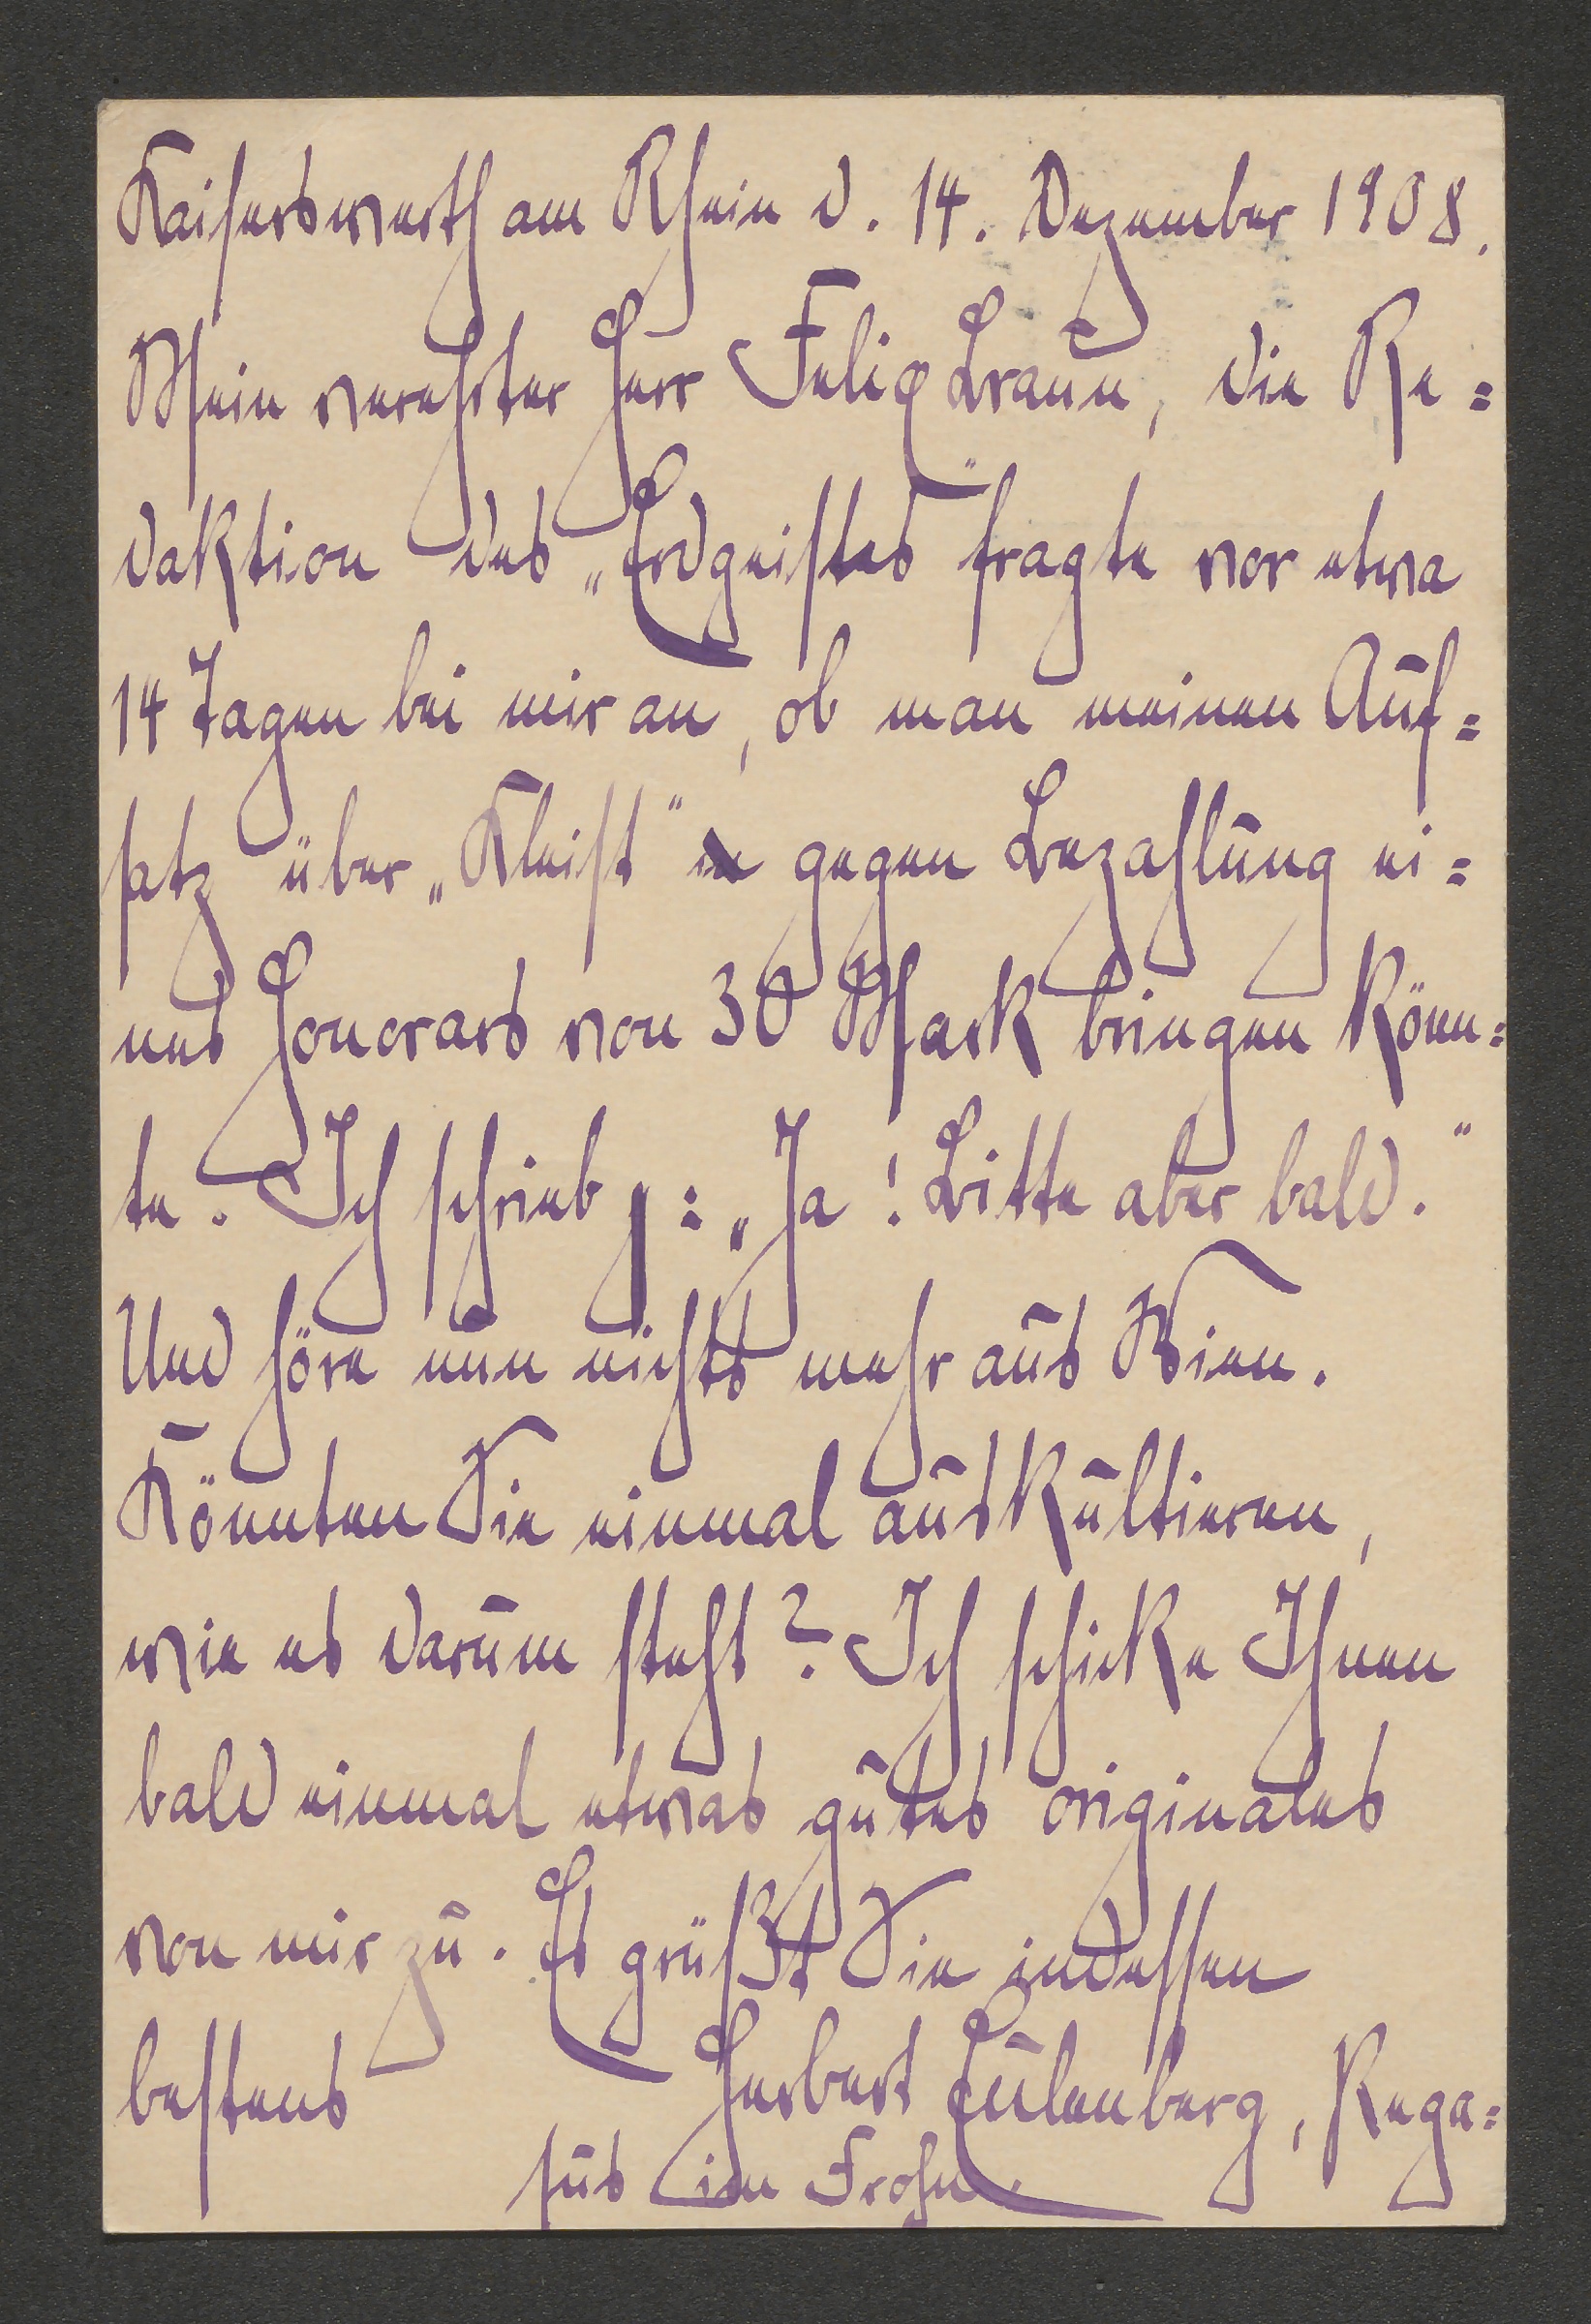 Kaiserswerth am Rhein d. 14. Dezember 1908.
Mein verehrter Herr Felix Braun, die Re=
daktion des „Erdgeistes" fragte vor etwa
14 Tagen bei mir an, ob man meinen Auf=
satz über „Kleist" gegen Bezahlung ei=
nes Honorars von 30 Mark bringen könn=
te. Ich schrieb: „Ja! Bitte aber bald."
Und höre nun nichts mehr aus Wien.
Könnten Sie einmal auskultieren,
wie es darum steht? Ich schicke Ihnen
bald einmal etwas gutes originales
von mir zu. Es grüßt Sie indessen
bestens Herbert Eulenberg, Pega=
sus im Frohn.